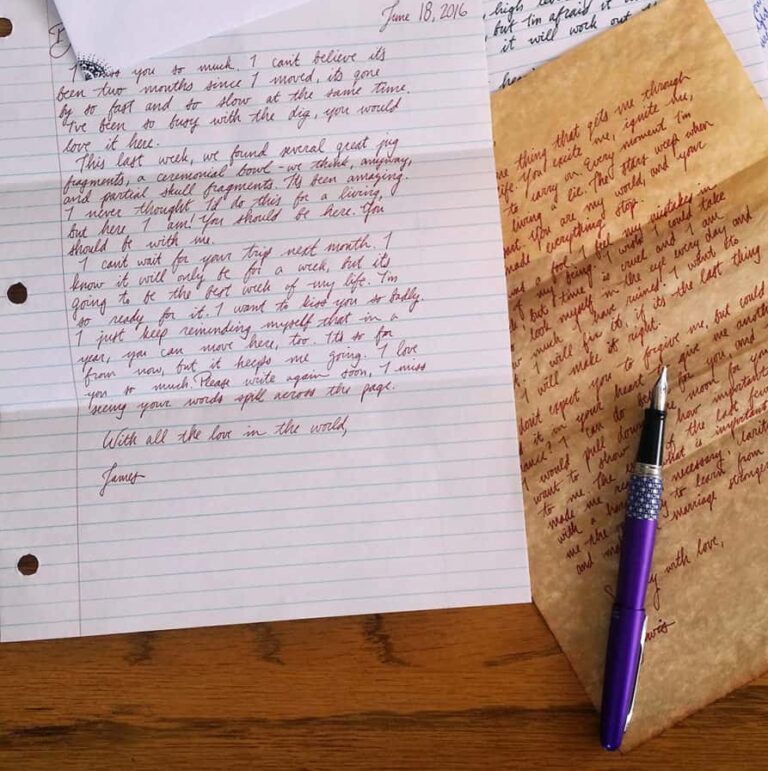 June 18, 2016
I miss you so much. I can't believe its
been two months since I moved, its gone
by so fast and so slow at the same time.
I've been so busy with the dig, you would
love it here.
This last week, we found several great jug
fragments, a ceremonial bowl -we think, anyway,
and partial skull fragments. Its been amazing.
I never thought I'd do this for a living,
but here I am! You should be here. You
should be with me.
I can't wait for your trip next month. I
know it will only be for a week, but its
going to be the best week of my life. I'm
so ready for it. I want to kiss you so badly.
I just keep reminding myself that in a
year, you can move here, too. Its so far
from now, but it keeps me going. I love
you so much. Please write again soon, I miss
seeing your words spill across the page.
With all the love in the world,
James
high
but I'm afraid it
it will work out
thing that gets me through
life. You ignite me, ignite me,
to carry on. Every moment I'm
living a lie. The stars weep when
You are my world, and your
made everything stop.
was a fool. I feel my mistakes in
of my being. I wish I could take
but time is cruel and I am
look myself in the eye every day and
much I have ruined. I want to
I will fix it, if its the last thing
I will make it right.
don't expect you to forgive me, but could
it in your heart to give me another
chance? I can do for you and
I would pull down moon for you
want to show how important
to me the last few
made me that is important
with a necessary
me the to learn from
and marriage stronger
with love,